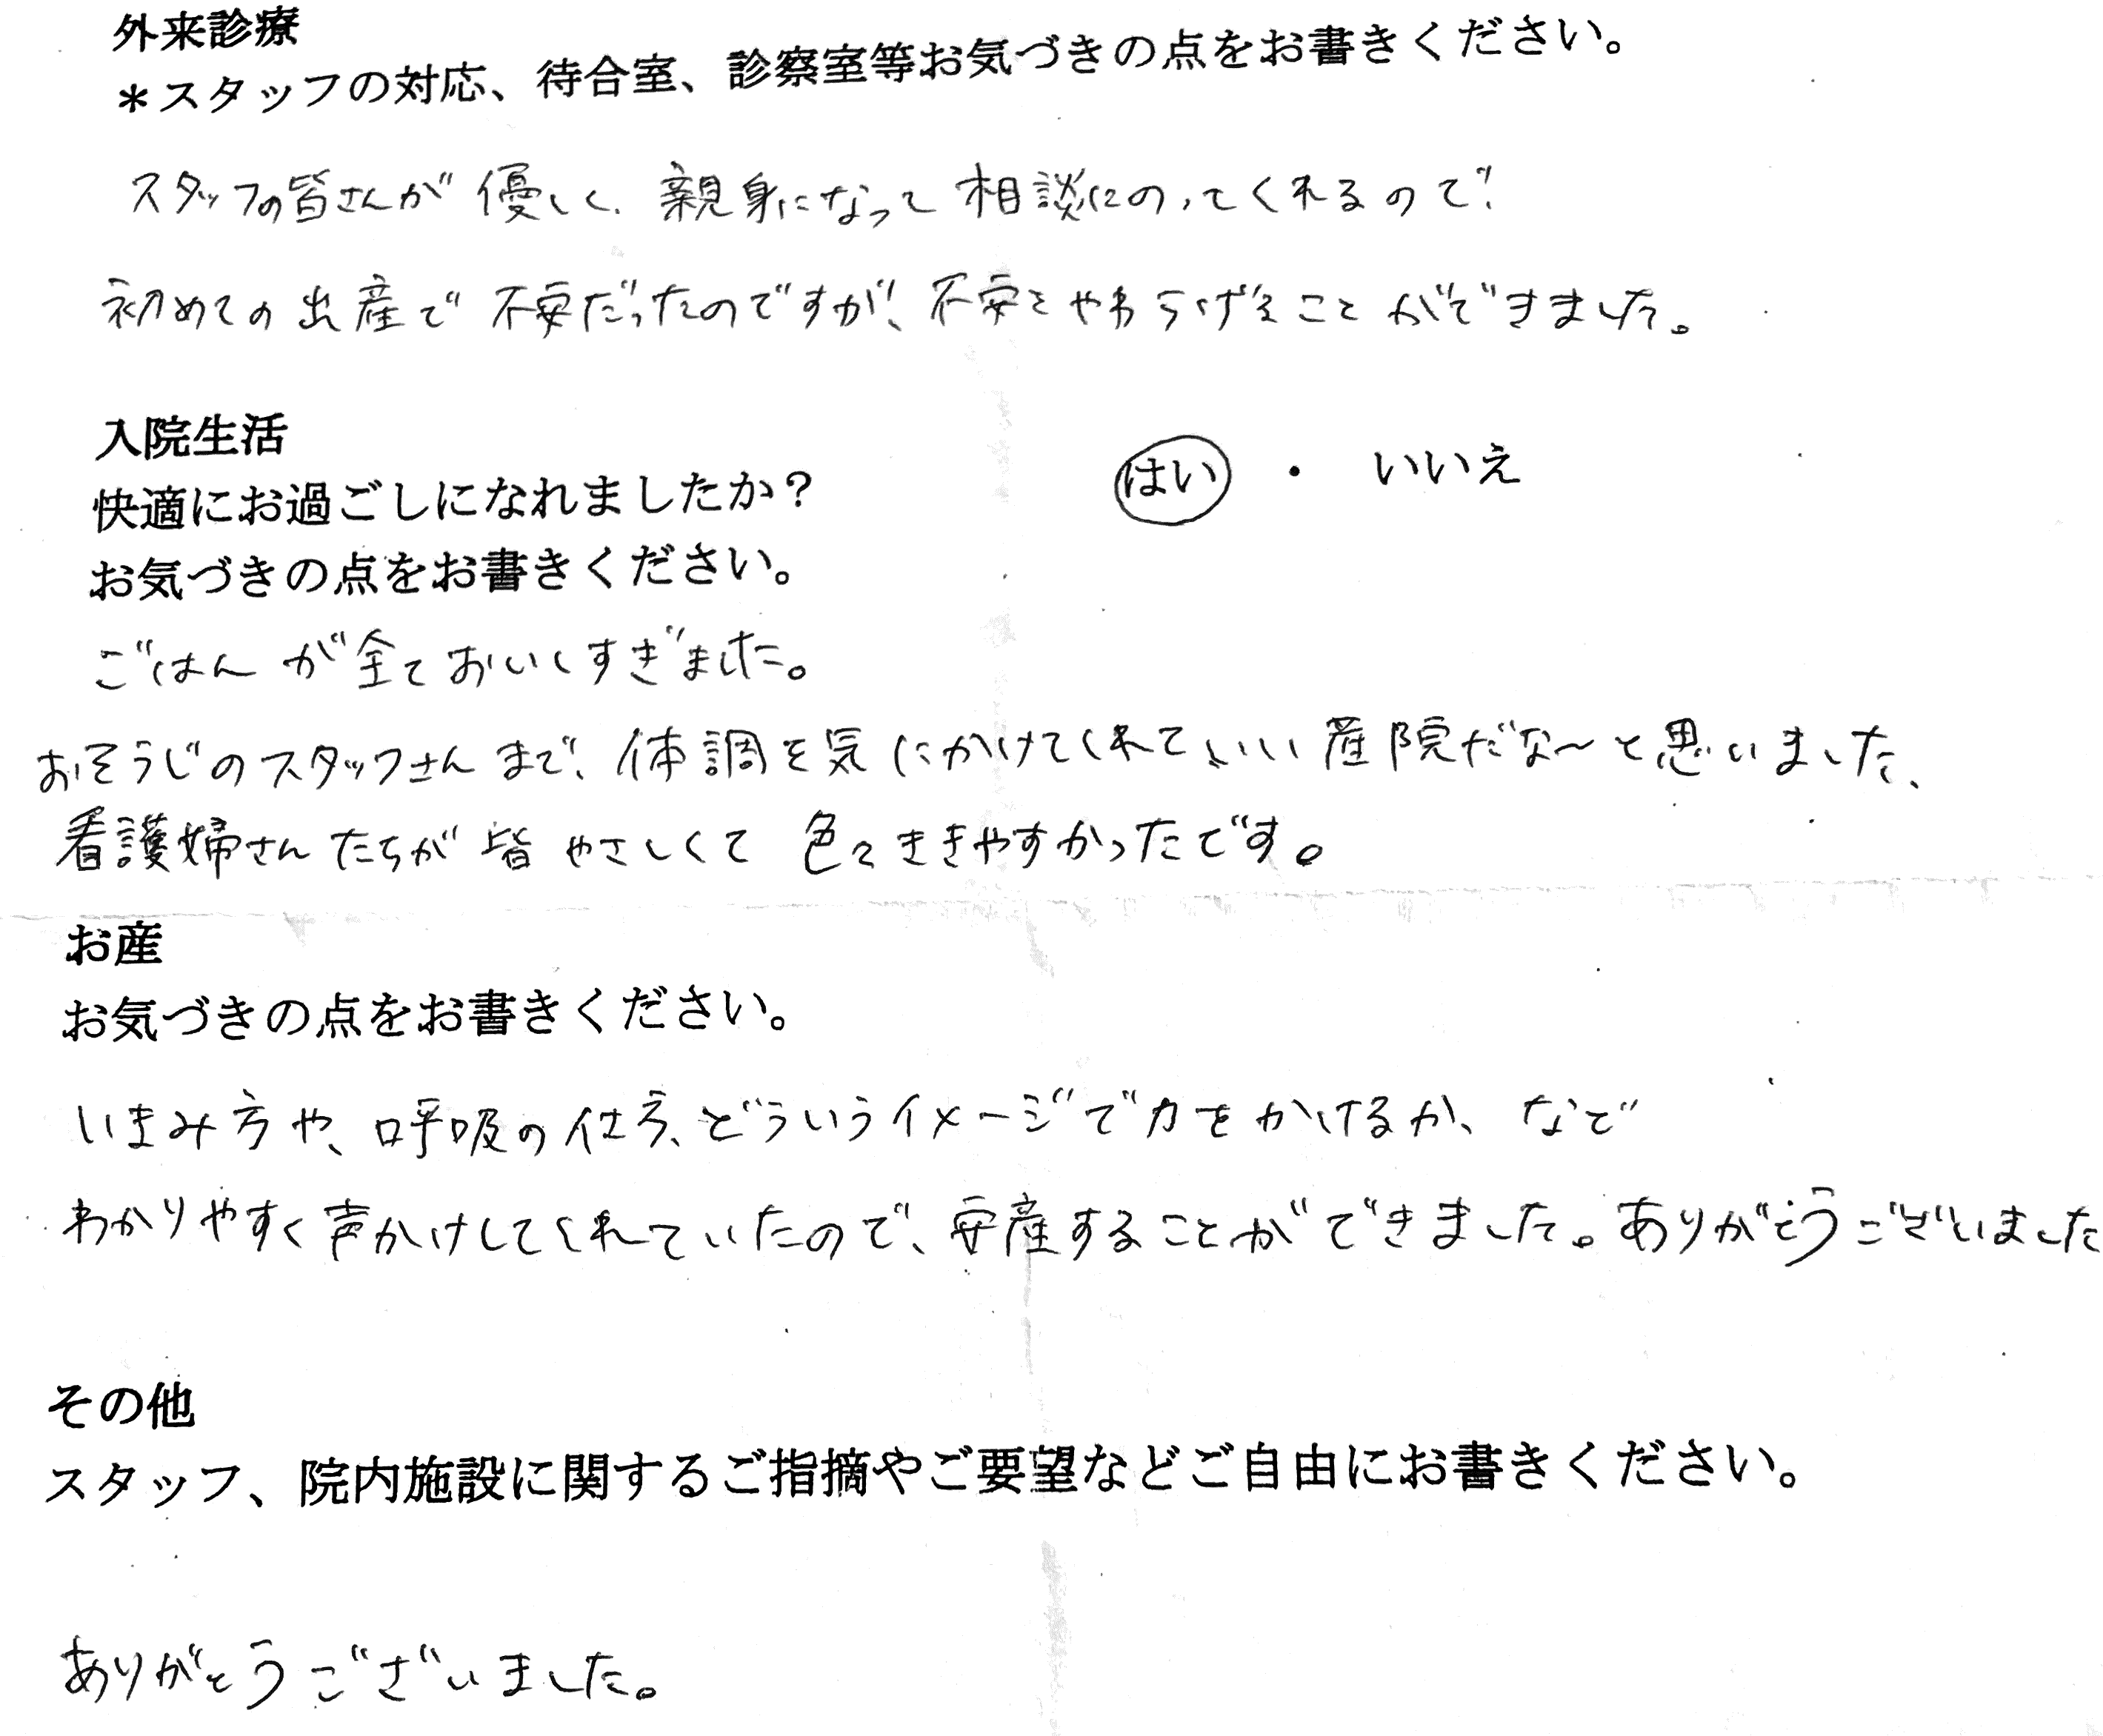 外来診療
*スタッフの対応、待合室、診察室等お気づきの点をお書きください。
スタッフの皆さんが優しく、親身になって相談にのってくれるので、
初めての出産で不安だったのですが、不安をやわらげることができました。
入院生活
快適にお過ごしになれましたか?
はい ・ いいえ
お気づきの点をお書きください。
ごはんが全ておいしすぎました。
おそうじのスタッフさんまで、体調を気にかけてくれて、いい産院だな〜と思いました、
看護婦さんたちが皆やさしくて色々ききやすかったです。
お産
お気づきの点をお書きください。
いきみ方や、呼吸の仕方、どういうイメージで力をかけるか、など
わかりやすく声かけしてくれていたので、安産することができました。ありがとうございました
その他
スタッフ、院内施設に関するご指摘やご要望などご自由にお書きください。
ありがとうございました。